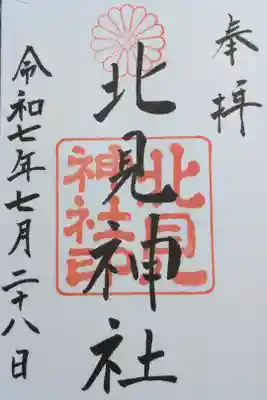 奉拝
北見神社
北見
神社印
令和七年七月二十八日